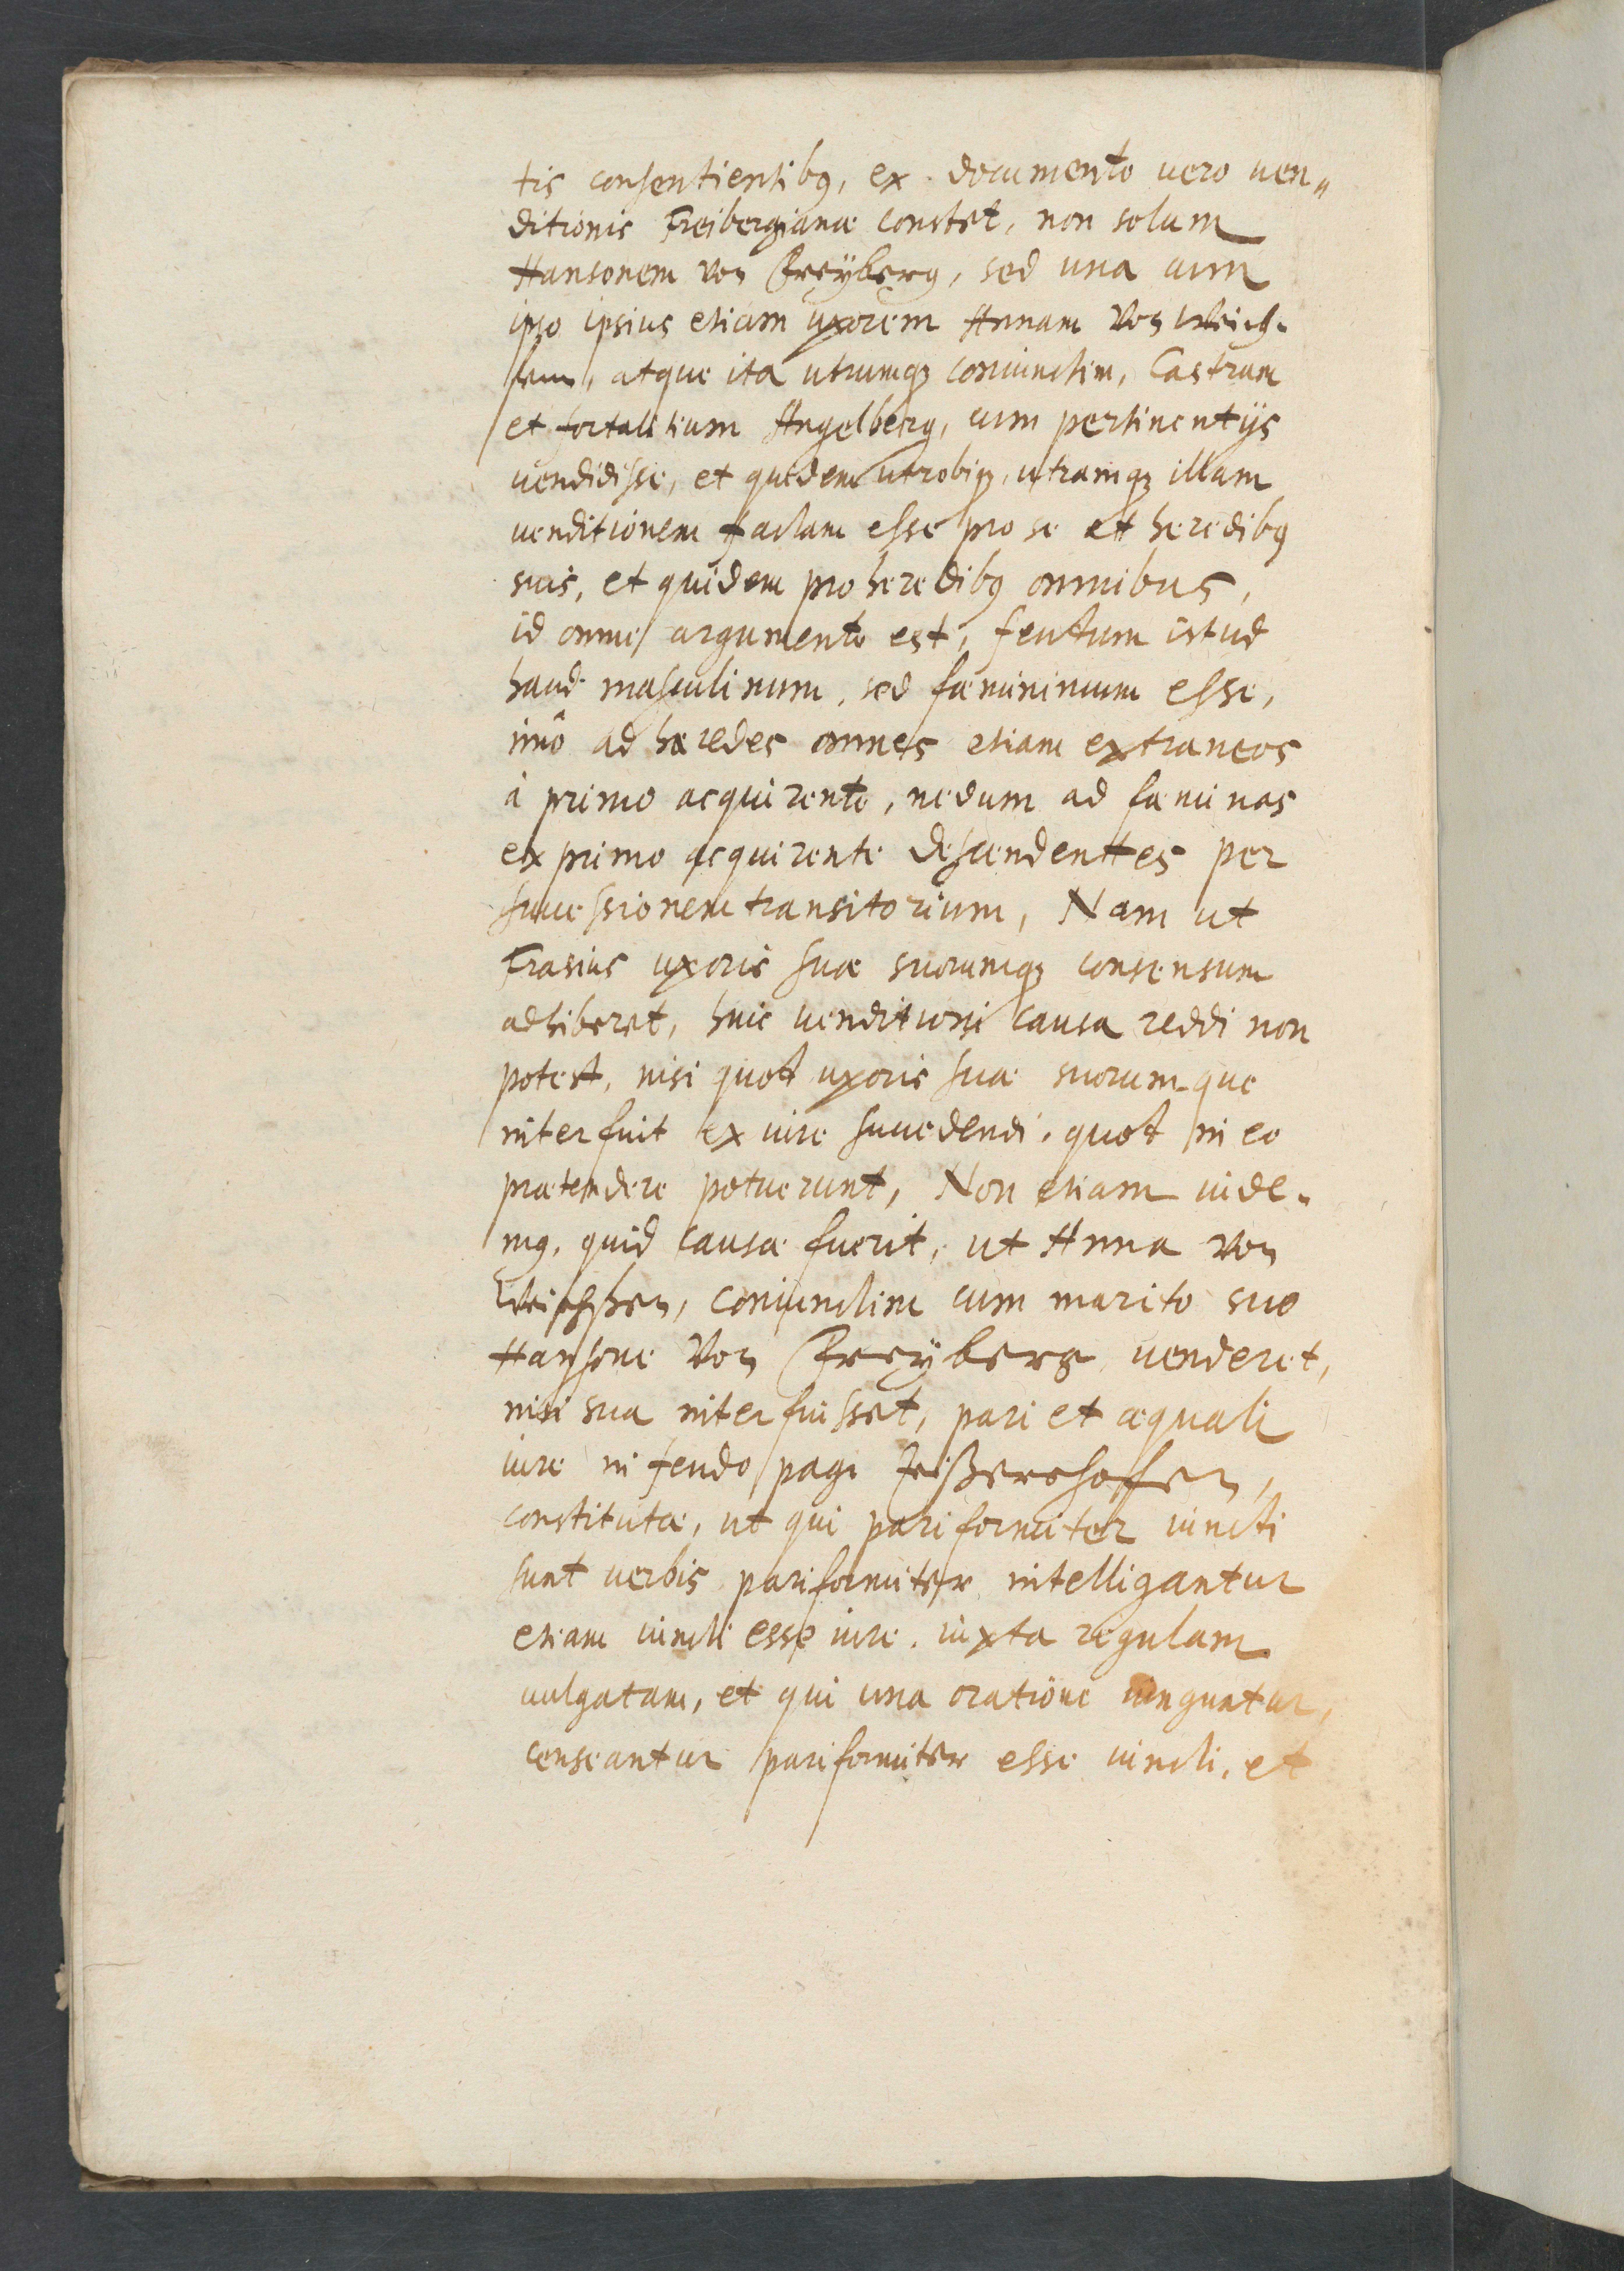 tis consentientibꝰ, ex documento vero uen„
ditionis Freibergianæ constet, non solum
Hansonem von Freyberg, sed una cum
ipso ipsius etiam uxorem Annam von Weich-
sern, atque ita utrumqꝫ coniunctim, Castrum
et fortalitium Angelberg, cum pertinentijs
uendidisse, et quidem utrobiqꝫ, utramqꝫ illam
uenditionem factam esse pro se et heredibꝰ
suis, et quidem pro heredibꝰ omnibus,
id omne argumento est, feudum istud
haud masculinum, sed fæmininum esse,
imò ad hæredes omnes etiam extraneos
à primo acquirente, nedum ad fæminas
ex primo acquirente descendentes per
successionem transitorium, Nam ut
Erasius uxoris suæ suorumqꝫ consensum
adhiberet, huic uenditioni causa reddi non
potest, nisi quod uxoris suæ suorumque
interfuit ex iure succedendi, quod in eo
prætendere potuerunt, Non etiam uide-
mꝰ, quid causæ fuerit, ut Anna von
coniunctim cum marito suo
Hansone von Freyberg uenderet,
nisi sua interfuisset, pari et æquali
iure in feudo pagi
constituta, ut qui pariformiter iuncti
sunt uerbis pariformiter intelligantur
etiam iuncti esse iure, iuxta regulam
uulgatam, et qui una oratione iunguntur,
censeantur pariformiter esse iuncti, et